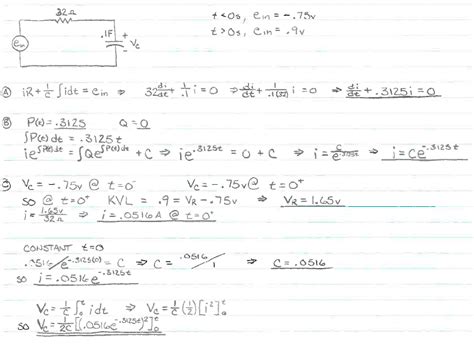 32Ω
t<0s, e_in = -.75v
t>0s, e_in = .9v
e_in
.1F
+
V_c
-
Ⓐ iR + 1/C ∫idt = e_in ⇒ 32 di/dt + 1/.1 i = 0 ⇒ di/dt + 1/.1(32) i = 0 ⇒ di/dt + .3125i = 0
Ⓑ P(t) = .3125 Q = 0
∫P(t)dt = .3125t
ie^∫P(t)dt = ∫Qe^∫P(t)dt + C ⇒ ie^.3125t = 0 + C ⇒ i = C/e^.3125t ⇒ i = Ce^-.3125t
V_c = -.75v @ t=0⁻ V_c = -.75v @ t=0⁺
SO @ t=0⁺ KVL = .9 = V_R - .75v ⇒ V_R = 1.65v
i = 1.65v/32Ω ⇒ i = .0516A @ t=0⁺
CONSTANT t=0
.0516/e^-.3125(0) = C ⇒ C = .0516/1 ⇒ C = .0516
so i = .0516e^-.3125t
V_c = 1/C ∫₀ᵗ idt ⇒ V_c = 1/C (1/2)[i²]₀ᵗ
so V_c = 1/2C [(.0516e^-.3125t)²]₀ᵗ